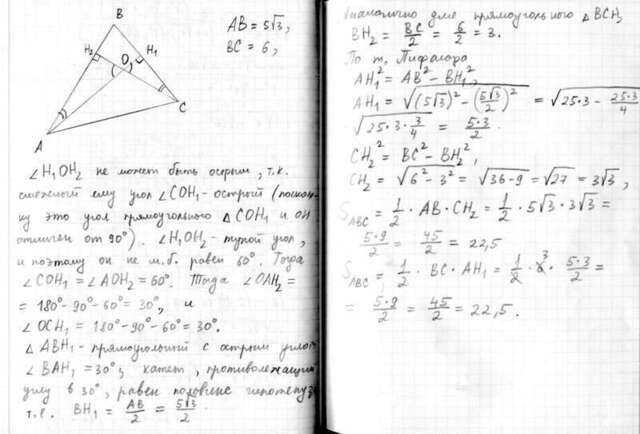 B
H₂
H₁
O
C
A
AB = 5√3,
BC = 6,
∠H₁OH₂ не может быть острым, т.к.
смежный ему угол ∠COH₁ - острый (посколь-
ку это угол прямоугольного △COH₁ и он
отличен от 90°). ∠H₁OH₂ - тупой угол,
и поэтому он не м.б. равен 60°. Тогда
∠COH₁ = ∠AOH₂ = 60°. Тогда ∠OAH₂ =
= 180° - 90° - 60° = 30°, и
∠OCH₁ = 180° - 90° - 60° = 30°.
△ABH₁ - прямоугольный с острым углом
∠BAH₁ = 30°; катет, противолежащий
углу в 30°, равен половине гипотенузы
т.е. BH₁ = AB/2 = 5√3/2.
Аналогично для прямоугольного △BCH₂
BH₂ = BC/2 = 6/2 = 3.
По т. Пифагора
AH₁² = AB² - BH₁²,
AH₁ = √((5√3)² - (5√3/2)²) = √(25·3 - 25·3/4)
√(25·3·3/4) = 5·3/2.
CH₂² = BC² - BH₂²,
CH₂ = √(6² - 3²) = √(36-9) = √27 = 3√3,
S_ABC = 1/2 · AB · CH₂ = 1/2 · 5√3 · 3√3 =
5·9/2 = 45/2 = 22,5
S_ABC = 1/2 · BC · AH₁ = 1/2 · 6 3 · 5·3/2 =
= 5·9/2 = 45/2 = 22,5.